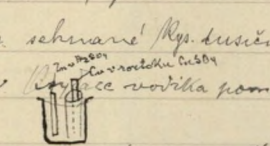 sehnané Kys. dusič
Zn v H₂SO₄
Cu v roztoku CuSO₄
vodíka pom